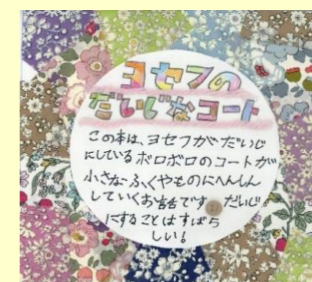 ヨセフの
だいじなコート
この本は、ヨセフがだいじ
にしているボロボロのコートが
小さなふくやものにへんしん
していくお話です だいじ
にすることはすばら
しい!